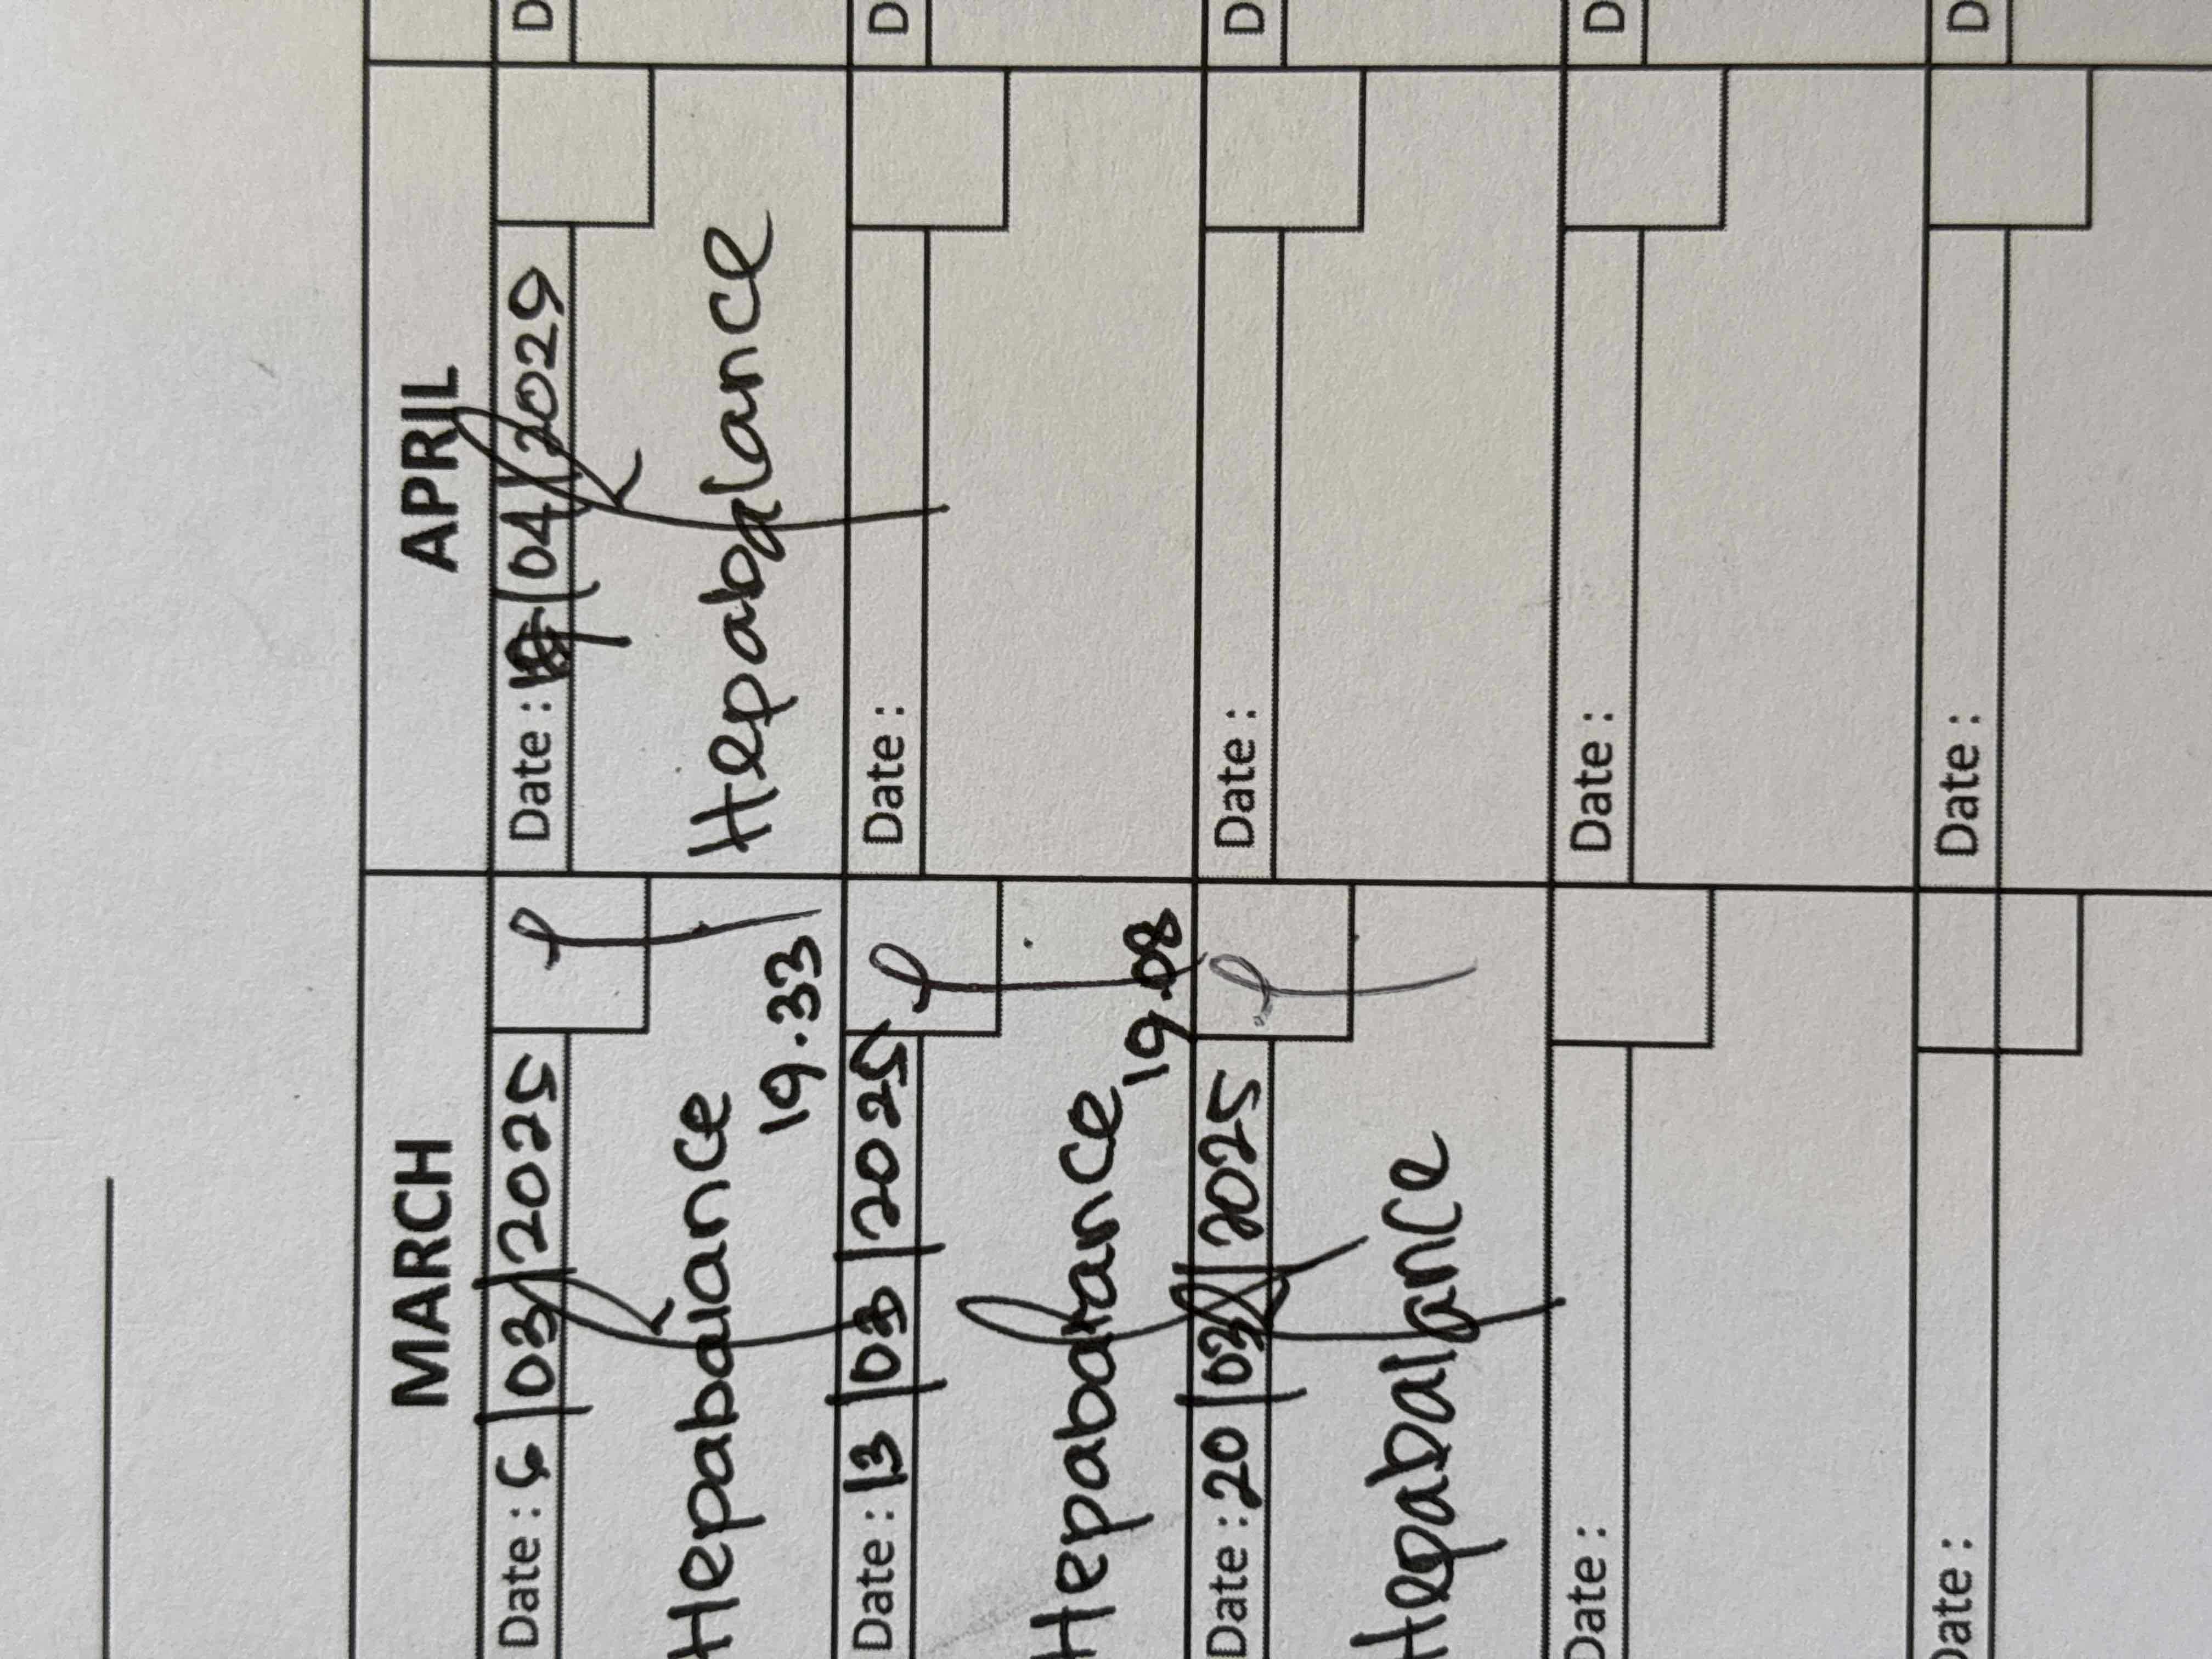 MARCH APRIL
Date : 6/03/2025 Date : /04/2029 D
Hepabalance Hepabalance
19.33
Date : 13/03/2025 Date : D
Hepabalance
19.08
Date : 20/03/2025 Date : D
Hepabalance
Date : Date : D
Date : Date : D